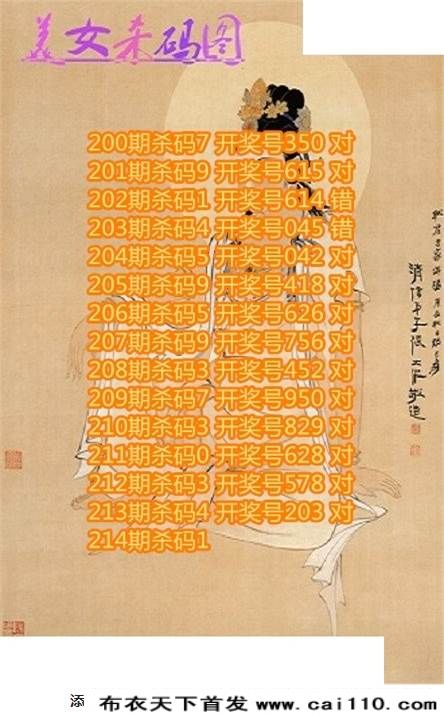 美女杀码图
200期杀码7 开奖号350 对
201期杀码9 开奖号615 对
202期杀码1 开奖号614 错
203期杀码4 开奖号045 错
204期杀码5 开奖号042 对
205期杀码9 开奖号418 对
206期杀码5 开奖号626 对
207期杀码9 开奖号756 对
208期杀码3 开奖号452 对
209期杀码7 开奖号950 对
210期杀码3 开奖号829 对
211期杀码0 开奖号628 对
212期杀码3 开奖号578 对
213期杀码4 开奖号203 对
214期杀码1
添 布衣天下首发 www.cai110.com